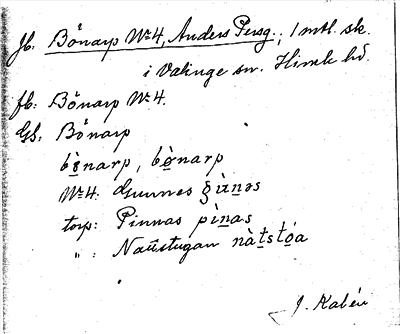 Jb: Bönarp No 4, Anders Persg.; 1 mtl. sk.
i Valinge sn. Himle hd.
fb: Bönarp No 4.
Gb: Bönarp
bò̱narp, bø̱̀narp
No 4. Gunnes
torp: Pinnas pìṉas
": Naústugan
J. Kalén